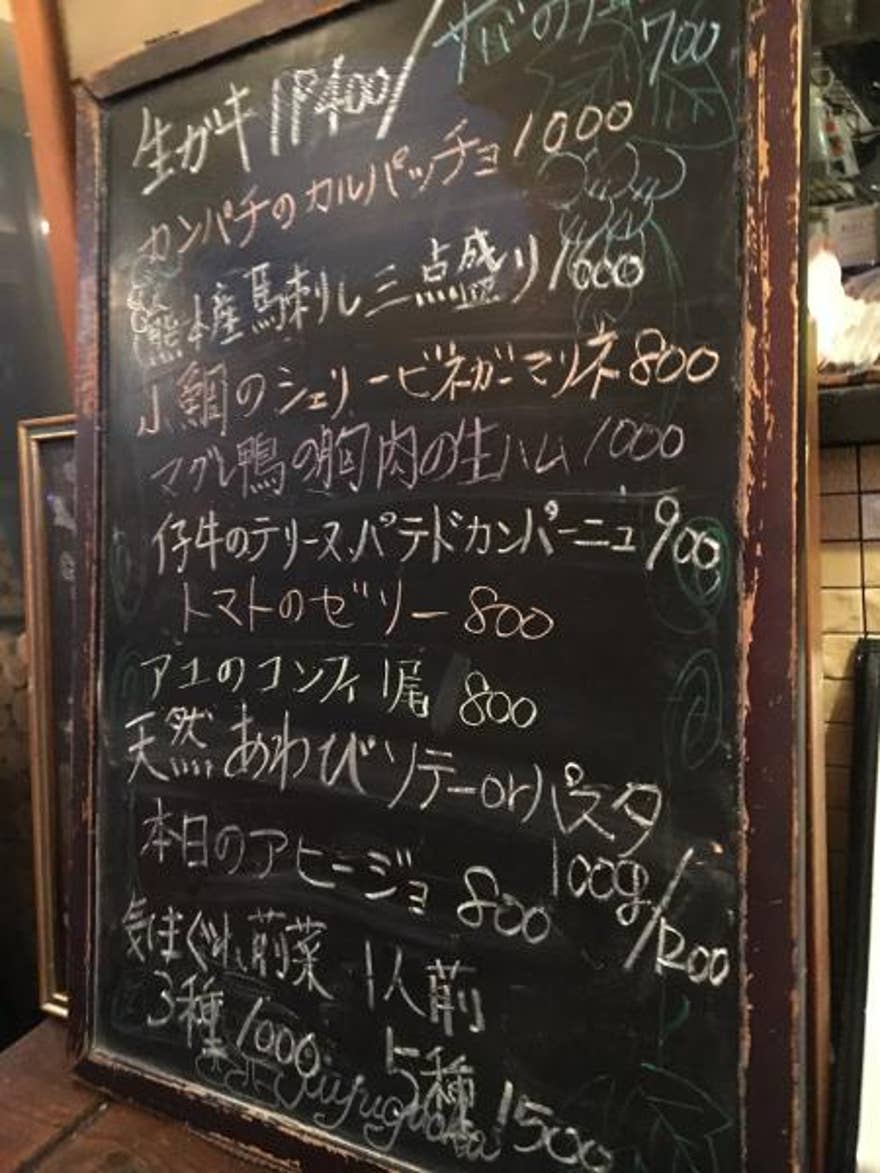 サバの 700
生ガキ 1P400/
カンパチのカルパッチョ 1000
熊本産馬刺し三点盛り 1600
小鯛のシェリービネガーマリネ 800
マグレ鴨の胸肉の生ハム 1000
仔牛のテリーヌ、パテドカンパーニュ 900
トマトのゼリー 800
アユのコンフィ 1尾 800
天然あわびソテーorパスタ
100g/1200
本日のアヒージョ 800
気まぐれ前菜 1人前
3種 1000 5種 1500